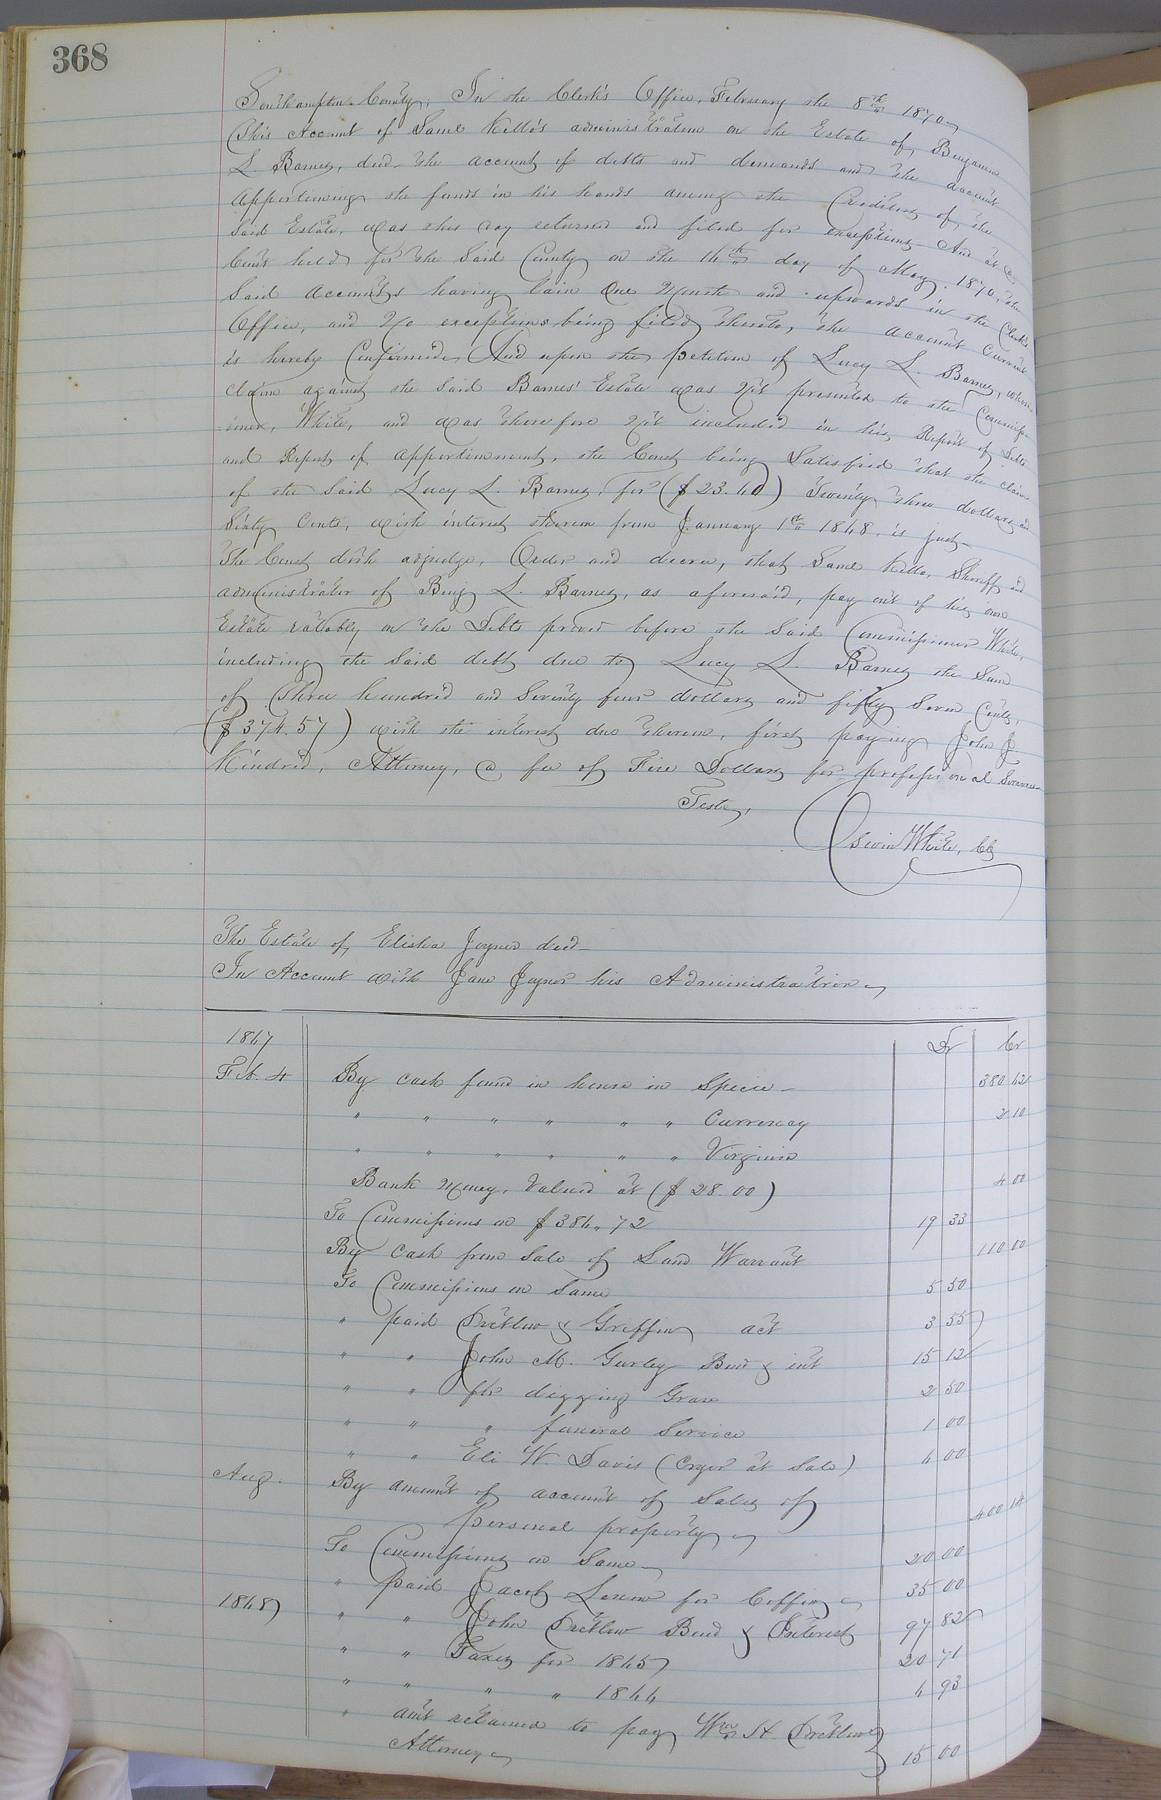 368
Southampton County, In the Clerk's Office, February the 8th 1870
This Account of Saml Kello's administration on the Estate of Benjamin
L. Barnes, decd the account of debts and demands and the account
apportioning the funds in his hands among the Creditors of the
Said Estate, was this day returned and filed for exceptions And at a
Court held for the Said County on the 16th day of May 1870, the
Said Accounts having lain One Month and upwards in the Clerk's
Office, and No exceptions being filed thereto, the account Current
is hereby Confirmed And upon the petition of Lucy L. Barnes, whose
Claim against the Said Barnes' Estate was Not presented to the Commiss-
ioner, White, and was therefore Not included in his Report of Debts
and Report of apportionment, the Court being Satisfied that the claim
of the Said Lucy L. Barnes, for ($23.60) Twenty three dollars and
Sixty Cents, with interest thereon from January 1st 1868, is just
The Court doth adjudge, Order and decree, that Saml Kello, Sheriff and
administrator of Benj L. Barnes, as aforesaid, pay out of his own
Estate ratably on the Debts proved before the Said Commissioner White,
including the Said debt due to Lucy L. Barnes the Sum
of Three hundred and Seventy four dollars and fifty Seven Cents,
($374.57) with the interest due thereon, first paying John J
Kindred, Attorney, a fee of Five Dollars for professional Services
Teste,
White, Clk
The Estate of Elisha Joyner decd
In Account with Jane Joyner his Administratrix
1867 Dr Cr
Feb. 4 By cash found in house in Specie 380 62
" " " " " " Currency 2 10
" " " " " " Virginia
Bank Money, Valued at ($28.00) 4 00
To Commissions on $386.72 19 33
By Cash from Sale of Land Warrant 110 00
To Commissions on Same 5 50
" paid Pretlow & Griffin act 3 55
" " John M. Gurley Bond & int 15 12
" " for digging Grave 2 50
" " " funeral Service 1 00
" " Eli W. Davis (Cryer at Sale) 6 00
Aug. By amount of account of Sales of
personal property 400 14
To Commissions on Same 20 00
" paid Jacob for Coffin 35 00
1868 " " John Pretlow Bond & Interest 97 82
" " Taxes for 1865 20 71
" " " " 1866 6 93
" amt retained to pay Wm H. Pretlow
Attorney 15 00